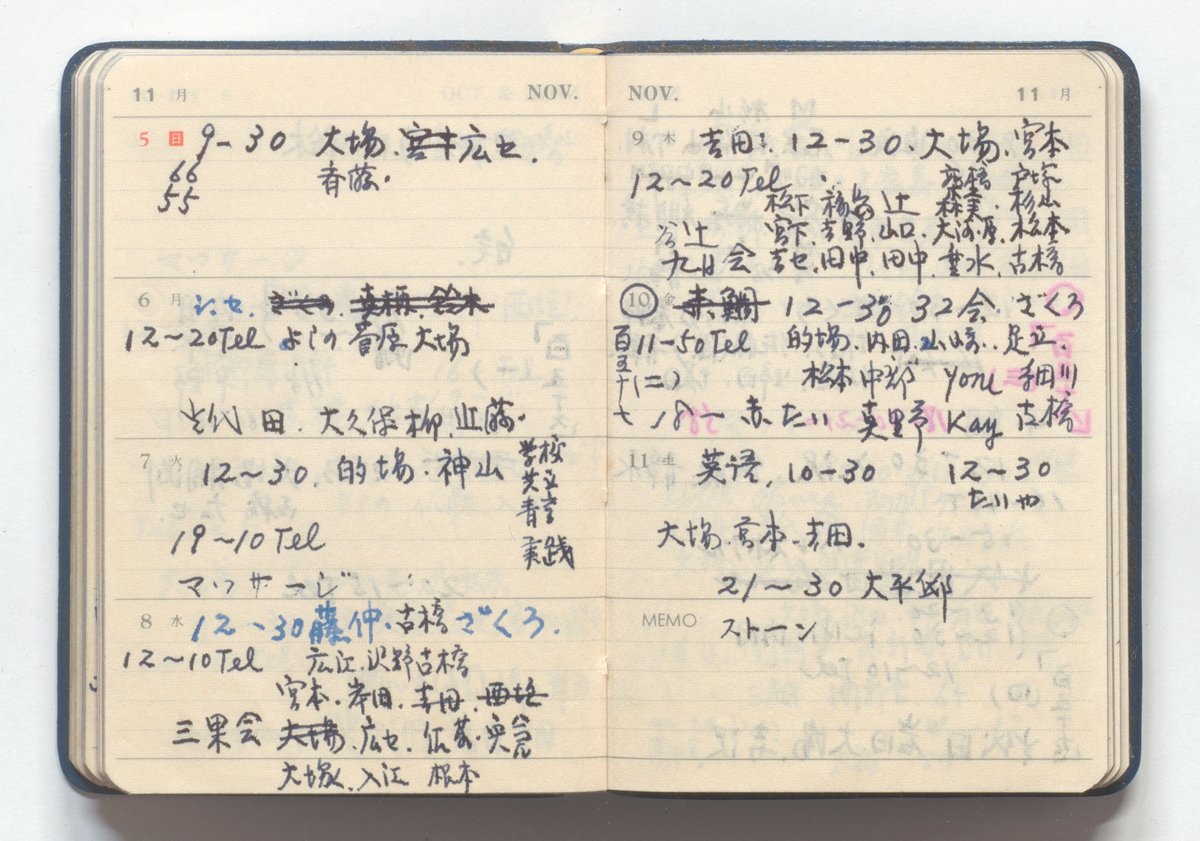 11 月 NOV.
5 日 9-30 大場 宮本 広セ.
66 斉藤.
55
6 月 ざくろ. 真頼. 鈴木
12～20Tel よしの 菅原 大場
大久保 柳. 近藤.
7 火 12-30. 的場. 神山
学校
共立
青空
実践
19～10Tel
マッサージ
8 水 12-30 藤仲. 古橋 ざくろ.
12～10Tel 広江. 沢野 古橋
宮本. 岸田. 吉田.
三果会 大場. 広セ. 佐藤.
大塚. 入江 根本
NOV. 11 月
9 木 吉田. 12-30. 大場. 宮本
12～20Tel 高橋 戸塚
松下 福島 辻 森美. 杉山
辻 宮下. 吉野. 山口. 大河原. 松本
九日会 吉セ. 田中. 田中. 垂水. 古橋
10 金 赤鯛 12-30 32会. ざくろ
11-50Tel 的場. 内田. 山崎. 足立.
百五十七
(二) 松本 中郷 細川
18- 赤たい Kay 古橋
11 土 英語. 10-30 12-30
たいや
大場. 宮本. 吉田.
21～30 大平邸
MEMO ストーン